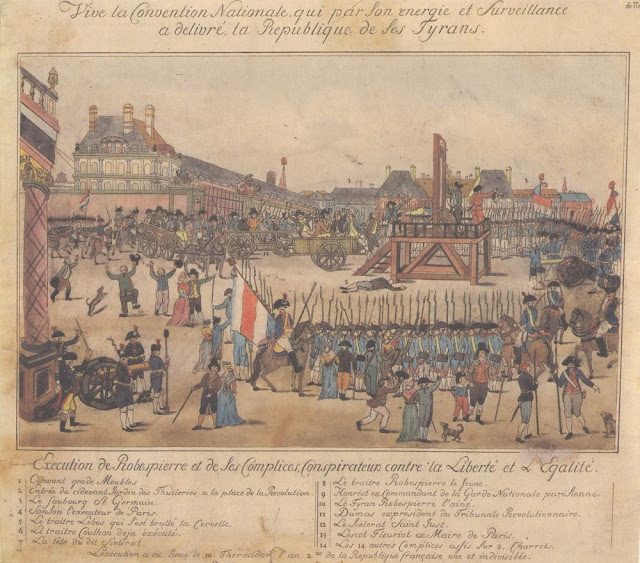 Vive la Convention Nationale, qui par Son energie et Surveillance
a delivré, la Republique, de Ses Tyrans.
Execution de Robespierre et de Ses Complices Conspirateur contre la Liberté et L'Egalité.
1 Cidevant grade Meubles
2 Entrée du cidevant Jardin des Thuileries a la place de la Revolution.
3 Le faubourg St Germain.
4 Sanson l'executeur de Paris.
5 Le traitre Lebas qui s'est brullé la Cervelle.
6 Le traitre Couthon deja executé.
7 La tête du dit Scelerat.
8 Le traitre Robespierre le jeune.
9 Hanriot ex Commandant de la Garde Nationale parisienne.
10 Le Tyran Robespierre l'ainé.
11 Dumas ex president du Tribunale Revolutionnaire.
12 Le Scelerat Saint Just.
13 Lescot Fleuriot ex Maire de Paris.
14 Les 14 autres Complices assis Sur 2. Charrots.
L'execution a eu lieu le 10. Thermidor l'an 2me de la Republique française une et indivisible.